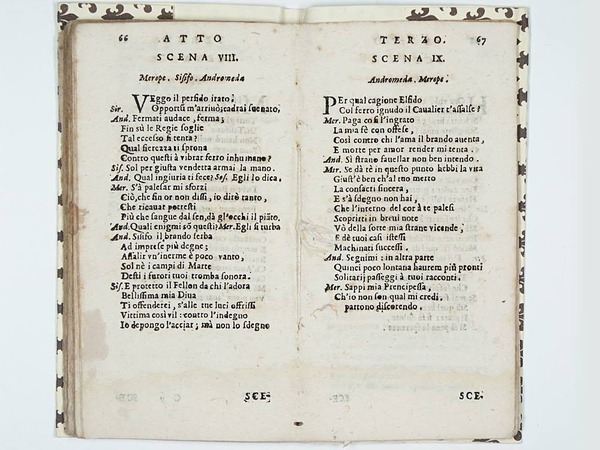 66 ATTO
SCENA VIII.
Merope. Sisifo. Andromeda
VEggo il perfido irato;
Sir. Opportū m'arriuò; cadrai suenato.
And. Fermati audace, ferma;
Fin sù le Regie soglie
Tal eccesso si tenta?
Qual fierezza ti sprona
Contro questi à vibrar ferro inhumano?
Sis. Sol per giusta vendetta armai la mano.
And. Qual ingiuria ti fece? Sis. Egli lo dica.
Mer. S'à palesar mi sforzi
Ciò, che fin or non dissi, io dirò tanto,
Che ricauar potresti
Più che sangue dal sen, dà gl'occhi il piãto.
And. Quali enigmi sō questi? Mer. Egli si turba
And. Sisifo il brando serba
Ad imprese più degne;
Assalir vn'inerme è poco vanto,
Sol nè i campi di Marte
Desti i furori tuoi tromba sonora.
Sis. E protetto il Fellon da chi l'adora
Bellissima mia Diua
Ti offenderei, s'alle tue luci offrissi
Vittima così vil: contro l'indegno
Io depongo l'acciar; mà non lo sdegno
SCE-
TERZO. 67
SCENA IX.
Andromeda. Merope.
PEr qual cagione Elfido
Col ferro ignudo il Caualier t'assalse?
Mer. Paga così l'ingrato
La mia fè con offese,
Così contro chi l'ama il brando auenta,
E morte per amor render mi tenta.
And. Sì strano fauellar non ben intendo.
Mer. Se da tè in questo punto hebbi la vita
Giust'è ben ch'al tuo merto
La consacri sincera,
E s'à sdegno non hai,
Che l'interno del cor à te palesi
Scoprirti in breui note
Vò della sorte mia strane vicende,
E dè tuoi casi istessi
Machinati successi.
And. Segnimi: in altra parte
Quinci poco lontana haurem più pronti
Solitarij passeggi à tuoi racconti.
Mer. Sappi mia Prencipessa,
Ch'io non son qual mi credi.
partono discorendo.
SCE-